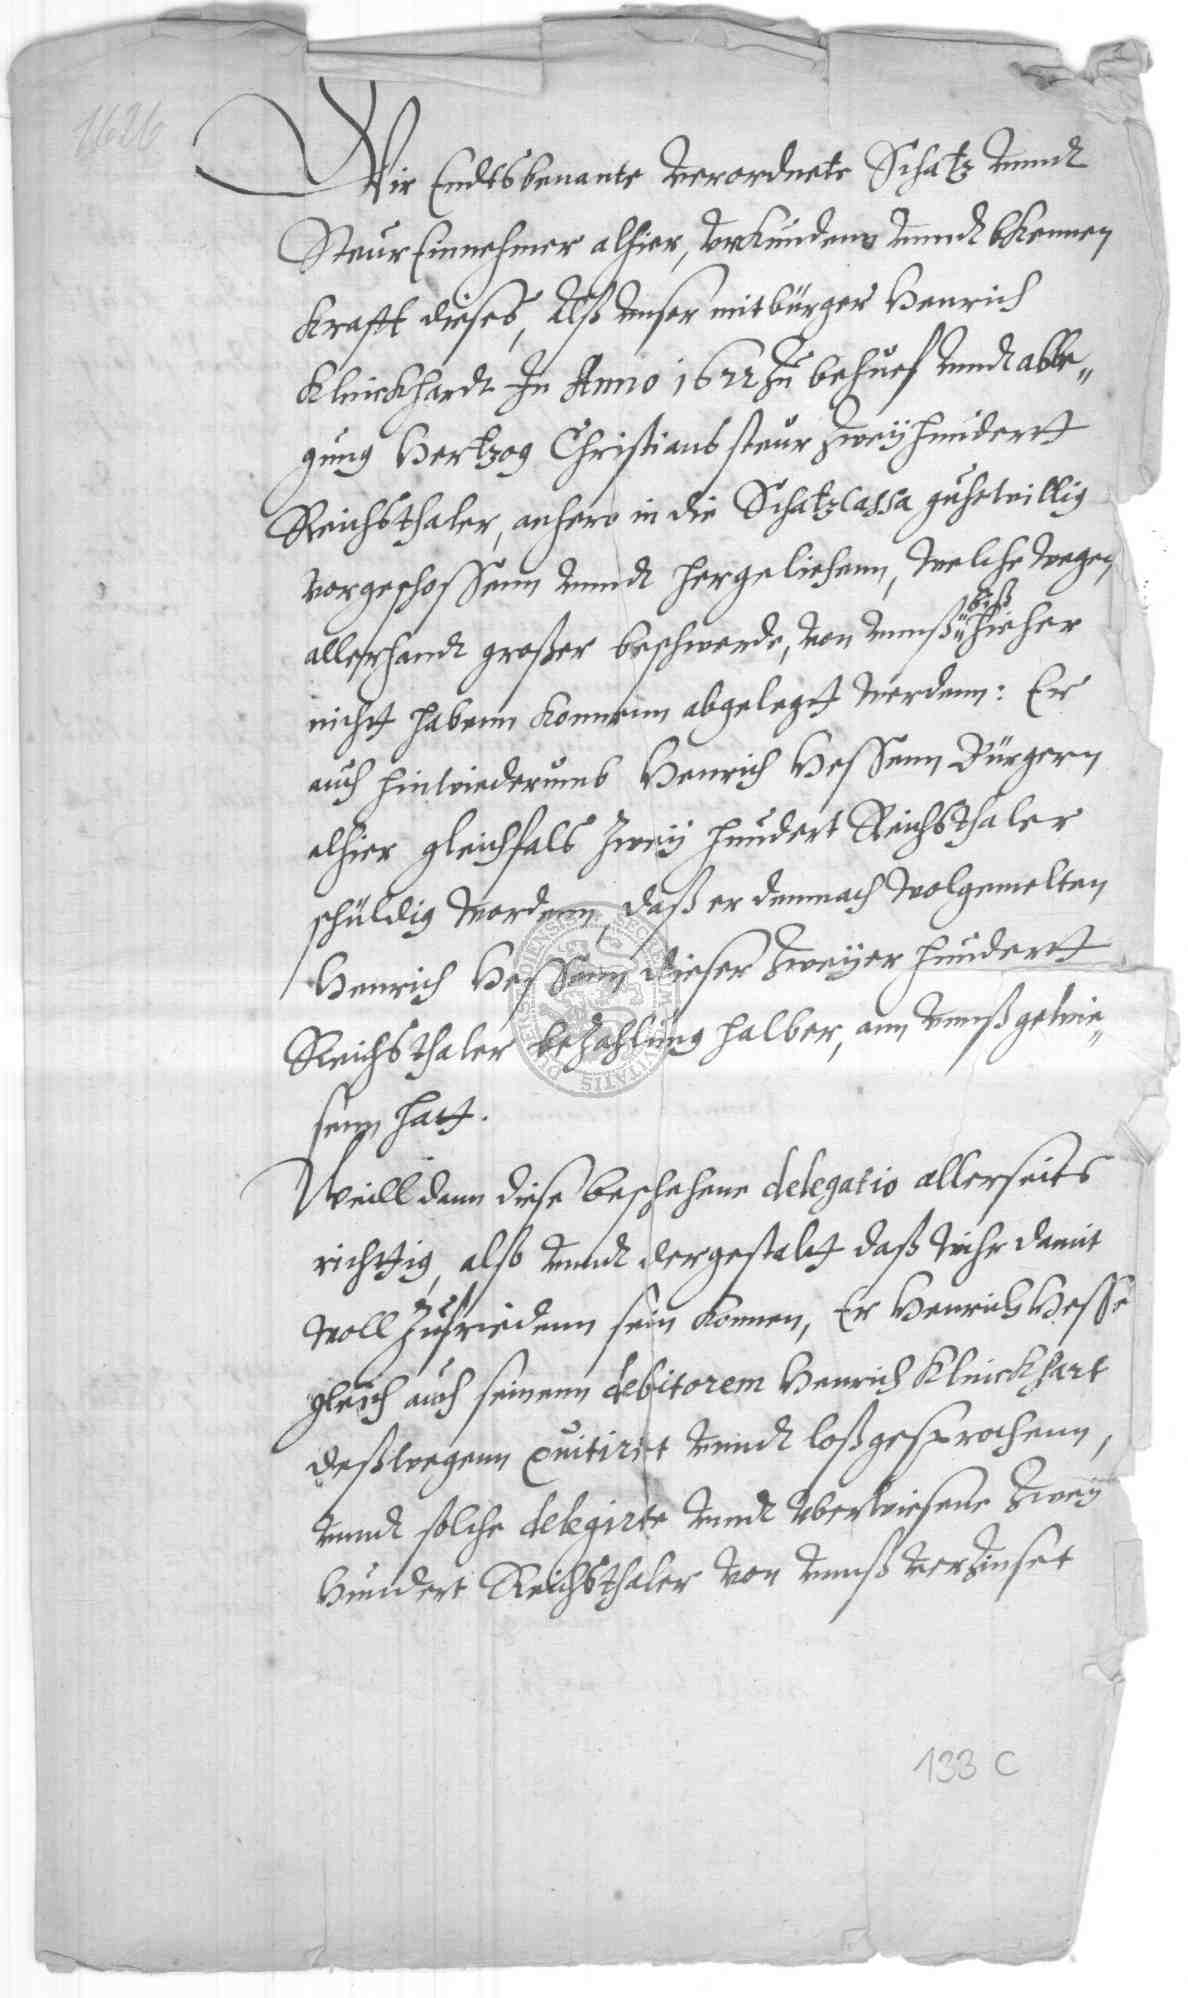 1626
Wir Endtsbenante verordnete Schatz vnndt
Steur Einnehmer alhier, vrkunden vnndt bekennen
Krafft dieses, Alß vnser mitbürger Henrich
Kleinckhardt In Anno 1622 zu behuef vnndt able„
gung Hertzog Christians steur zweÿhundertt
Reichsthaler, anhero in die Schatz Cassa guhetwillig
vorgeschossenn vnndt hergeliehenn, welche wegen
allerhandt großer beschwerde, von vnnß biß hieher
nicht habenn konnenn abgelegt werdenn: Er
auch hinwiederumb Henrich Hessenn Bürgern
alhier gleichfals zweÿ hundert Reichsthaler
schüldig wordenn, daß er demnach wolgemelten
Henrich Hessenn dieser zweÿer hundertt
Reichsthaler bezahlung halber, ann vnnß gewie„
senn hatt.
Weill dann diese beschehene delegatio allerseits
richtig, also vnndt dergestalt daß wihr damit
woll zufriedenn sein konnen, Er Henrich Hesse
gleich auch seinenn debitorem Henrich Kleinckhart
deßwegenn quitirt vnndt loßgesprochenn,
vnndt solche delegirte vnndt vberwiesene zweÿ
Hundert Reichsthaler von vnnß verzinset
133 C